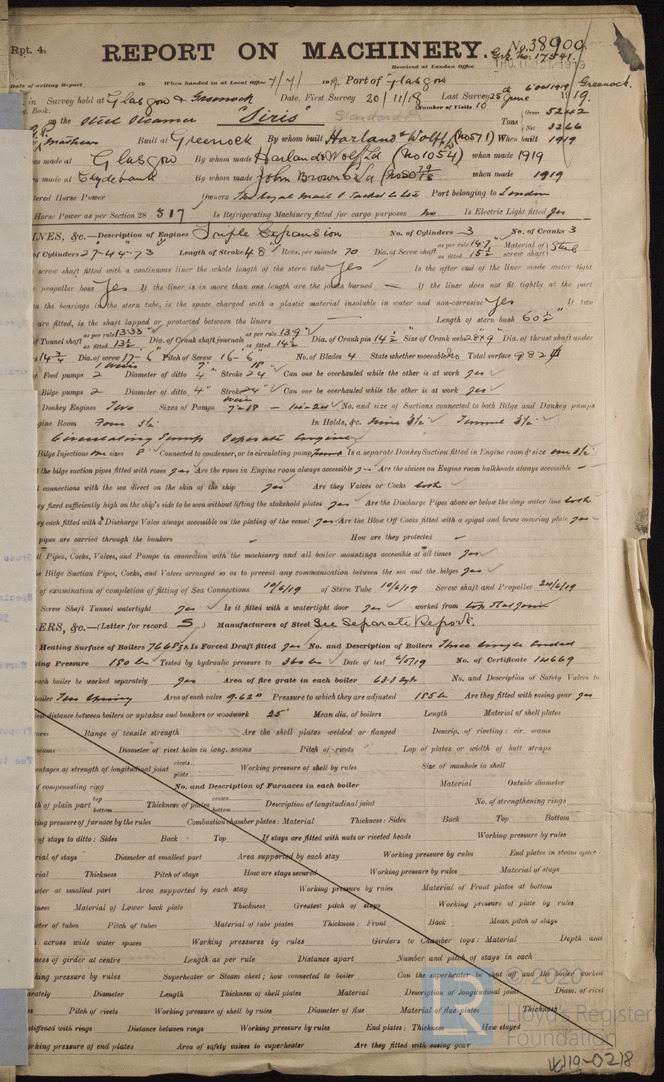 Rpt. 4.
REPORT ON MACHINERY.
No. 38900
Grk. No. 17341
Received at London Office
Date of writing Report 19 When handed in at Local Office 7/7/ 1919 Port of Glasgow
in Survey held at Glasgow & Greenock Date, First Survey 20/11/18 Last Survey 25th June 1919.
Book. Number of Visits 10
on the Steel Steamer "Siris" Tons Gross 5242 Net 3266
Built at Greenock By whom built Harland & Wolff (No 571) When built 1919
es made at Glasgow By whom made Harland & Wolff Ld (No 1054) when made 1919
rs made at Clydebank By whom made John Brown & Co Ld when made 1919
tered Horse Power Owners The Royal Mail S Packet Co Ltd Port belonging to London
Horse Power as per Section 28 517 Is Refrigerating Machinery fitted for cargo purposes no Is Electric Light fitted yes
INES, &c.—Description of Engines Triple Expansion No. of Cylinders 3 No. of Cranks 3
of Cylinders 27-44-73 Length of Stroke 48 Revs. per minute 70 Dia. of Screw shaft as per rule 14.7 as fitted 15½ Material of screw shaft Steel
screw shaft fitted with a continuous liner the whole length of the stern tube Yes Is the after end of the liner made water tight
propeller boss Yes If the liner is in more than one length are the joints burned — If the liner does not fit tightly at the part
n the bearings in the stern tube, is the space charged with a plastic material insoluble in water and non-corrosive Yes If two
are fitted, is the shaft lapped or protected between the liners — Length of stern bush 60½"
of Tunnel shaft as per rule 13.33 as fitted 13½ Dia. of Crank shaft journals as per rule 13.9 as fitted 14½ Dia. of Crank pin 14½ Size of Crank webs 28×9 Dia. of thrust shaft under
rs 14¾ Dia. of screw 17-6 Pitch of Screw 16-6 No. of Blades 4 State whether moveable no Total surface 98
of Feed pumps 2 Diameter of ditto 4" Stroke 24 Can one be overhauled while the other is at work yes
Bilge pumps 2 Diameter of ditto 4" Stroke 24" Can one be overhauled while the other is at work yes
Donkey Engines Two Sizes of Pumps No. and size of Suctions connected to both Bilge and Donkey pumps
gine Room Four 3½ In Holds, &c. 3½ Tunnel 3½
Circulating Pump Separate Engine
Bilge Injections one sizes 8 Connected to condenser, or to circulating pump Pump Is a separate Donkey Suction fitted in Engine room & size one 3½
l the bilge suction pipes fitted with roses yes Are the roses in Engine room always accessible yes Are the sluices on Engine room bulkheads always accessible —
l connections with the sea direct on the skin of the ship yes Are they Valves or Cocks both
y fixed sufficiently high on the ship's side to be seen without lifting the stokehold plates yes Are the Discharge Pipes above or below the deep water line both
y each fitted with a Discharge Valve always accessible on the plating of the vessel yes Are the Blow Off Cocks fitted with a spigot and brass covering plate yes
pipes are carried through the bunkers — How are they protected —
ll Pipes, Cocks, Valves, and Pumps in connection with the machinery and all boiler mountings accessible at all times yes
e Bilge Suction Pipes, Cocks, and Valves arranged so as to prevent any communication between the sea and the bilges yes
of examination of completion of fitting of Sea Connections 10/6/19 of Stern Tube 10/6/19 Screw shaft and Propeller 24/6/19
Screw Shaft Tunnel watertight yes Is it fitted with a watertight door yes worked from top platform
ERS, &c.—(Letter for record S) Manufacturers of Steel See Separate Report.
Heating Surface of Boilers 7668 Is Forced Draft fitted yes No. and Description of Boilers Three Single Ended
ing Pressure 180 lb Tested by hydraulic pressure to 360 lb Date of test No. of Certificate 14669
each boiler be worked separately yes Area of fire grate in each boiler No. and Description of Safety Valves to
boiler Two Spring Area of each valve 9.62 Pressure to which they are adjusted 185 lb Are they fitted with easing gear yes
est distance between boilers or uptakes and bunkers or woodwork 25 Mean dia. of boilers Length Material of shell plates
ness Range of tensile strength Are the shell plates welded or flanged Descrip. of riveting: cir. seams
seams Diameter of rivet holes in long. seams Pitch of rivets Lap of plates or width of butt straps
entages of strength of longitudinal joint rivets plate Working pressure of shell by rules Size of manhole in shell
of compensating ring No. and Description of Furnaces in each boiler Material Outside diameter
th of plain part top bottom Thickness of plates crown bottom Description of longitudinal joint No. of strengthening rings
king pressure of furnace by the rules Combustion chamber plates: Material Thickness: Sides Back Top Bottom
of stays to ditto: Sides Back Top If stays are fitted with nuts or riveted heads Working pressure by rules
rial of stays Diameter at smallest part Area supported by each stay Working pressure by rules End plates in steam space:
rial Thickness Pitch of stays How are stays secured Working pressure by rules Material of stays
eter at smallest part Area supported by each stay Working pressure by rules Material of Front plates at bottom
kness Material of Lower back plate Thickness Greatest pitch of stays Working pressure of plate by rules
eter of tubes Pitch of tubes Material of tube plates Thickness: Front Back Mean pitch of stays
across wide water spaces Working pressures by rules Girders to Chamber tops: Material Depth and
ness of girder at centre Length as per rule Distance apart Number and pitch of stays in each
king pressure by rules Superheater or Steam chest; how connected to boiler Can the superheater be shut off and the boiler worked
arately Diameter Length Thickness of shell plates Material Description of longitudinal joint Diam. of rivet
s Pitch of rivets Working pressure of shell by rules Diameter of flue Material of flue plates Thickness
stiffened with rings Distance between rings Working pressure by rules End plates: Thickness How stayed
rking pressure of end plates Area of safety valves to superheater Are they fitted with easing gear
© 2020
Lloyd's Register
Foundation
W110-0218